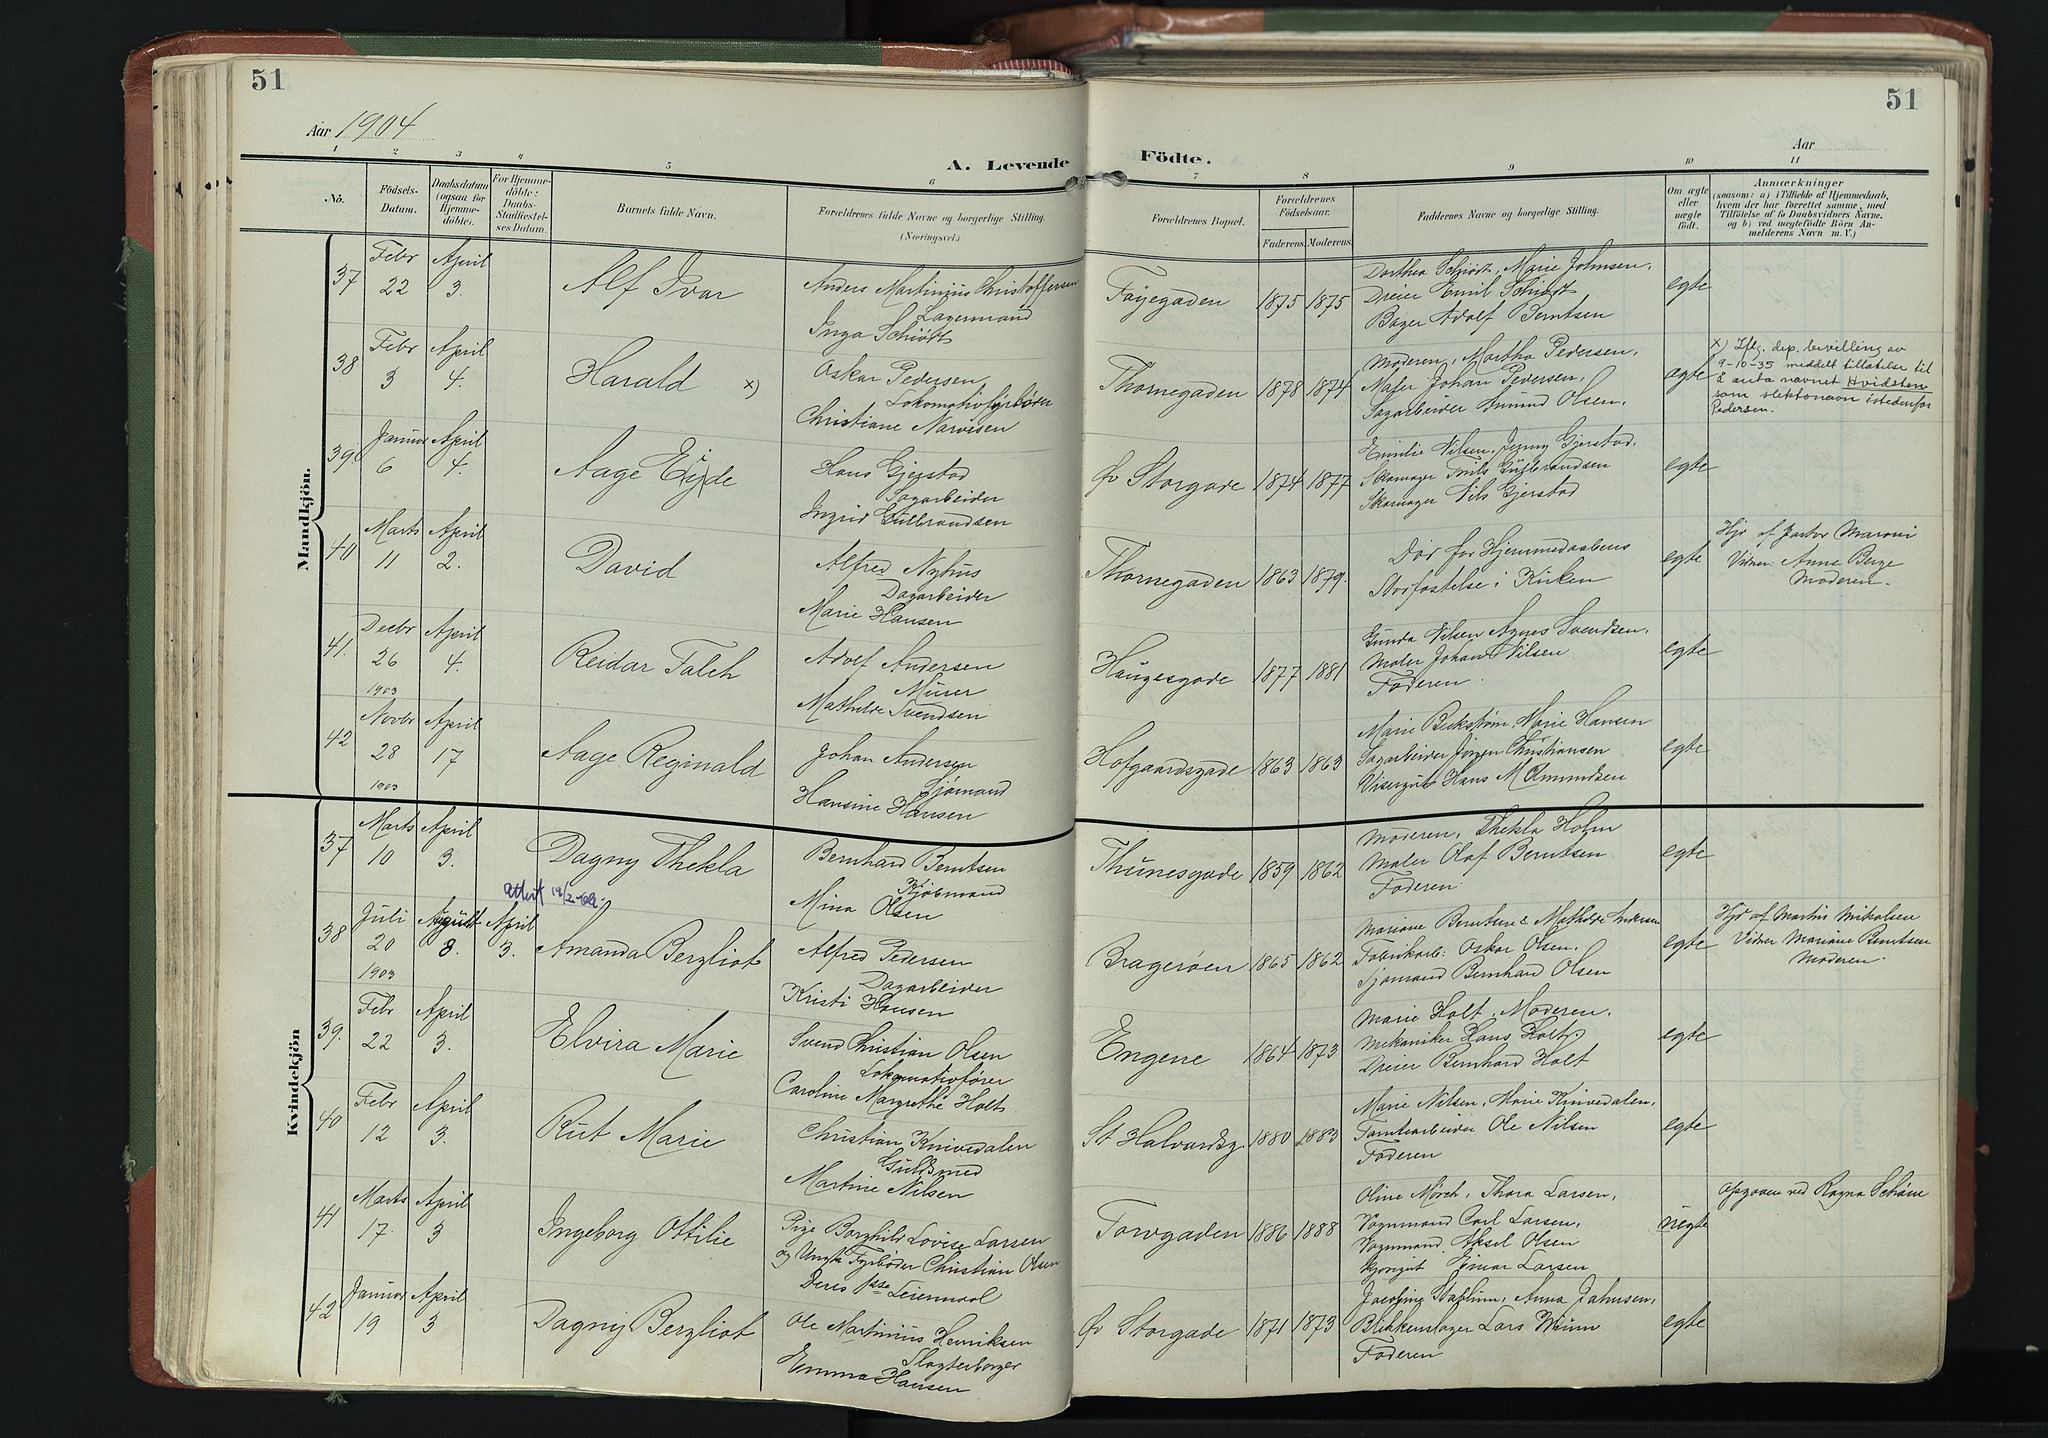 51
51
Aar 1904
Aar
A. Levende Födte.
1 2 3 4 5 6 7 8 9 10 11
No.
Födsels-Datum.
Daabsdatum (ogsaa for Hjemmedöbte).
For Hjemmedöbte: Daabs-Stadfæstelses Datum.
Barnets fulde Navn.
Forældrenes fulde Navne og borgerlige Stilling.
(Næringsvei.)
Forældrenes Bopæl.
Forældrenes Födselsaar.
Faderens. Moderens.
Faddernes Navne og borgerlige Stilling.
Om ægte eller uægte födt.
Anmærkninger
(saasom: a) i Tilfælde af Hjemmedaab,
hvem der har forrettet samme, med
Tilföielse af to Daabsvidners Navne,
og b) ved uægtefödte Börn Anmelderens Navn m. V.)
Mandkjön.
37 Febr 22 April 3. Alf Ivar
Anders Martinius Christoffersen
Lagermand
Inga Schiött
Föyegaden 1875 1875
Dorthea Schiödt, Marie Johnsen,
Dreier Emil Schiödt
Bager Adolf Berntsen
egte
38 Febr 3 April 4. Harald x)
Oskar Pedersen
Lokomotivfyrböter
Christiane Narvesen
Thornegaden 1878 1874
Moderen, Martha Pedersen,
Maler Johan Pedersen,
Sagarbeider Amund Olsen,
egte
x) Iflg. dep. bevilling av
9-10-35 meddelt tillatelse til
å anta navnet Hvidsten
som slektsnavn istedenfor
Pedersen.
39. Januar 6 April 4. Aage Eide
Hans Gjerstad
Sagarbeider
Ingrid Gulbrandsen
Öv Storgade 1874 1877
Emilie Nilsen, Jenny Gjerstad,
Skomager Gulbrandsen
Skomager Nils Gjerstad
egte
40 Marts 11 April 2. David
Alfred Nyhus
Dagarbeider
Marie Hansen
Thornegaden 1863 1879.
Död för Hjemmedaabens
Stadfæstelse i Kirken
egte
Hjd af Pastor Maroni
Vidner: Anne Berge
Moderen.
41. Decbr 26 1903 April 4. Reidar Falch
Adolf Andersen
Murer
Mathilde Svendsen
Haugesgade 1877 1881
Gunda Nilsen Agnes Svendsen,
Maler Johan Nilsen
Faderen.
egte
42 Novbr 28 1903 April 17 Aage Reginald
Johan Andersen
Sjömand
Hansine Hansen
Hofgaardsgade 1863 1863
Marie Beckström, Marie Hansen
Sagarbeider Jörgen Christiansen
Visergut Hans M Amundsen
egte
Kvindekjön
37 Marts 10 April 3. Dagny Thekla
Bernhard Berntsen
Kjöbmand
Mina Olsen
Thunesgade 1859 1862
Moderen, Thekla Holm
Maler Olaf Berntsen
Faderen
egte
38 Juli 20 1903 August 8. April 3. Amanda Bergliot
Alfred Pedersen
Dagarbeider
Kristi Hansen
Bragerøen 1865 1862
Mariane Berntsen & Mathilde Andersen
Fabrikarb: Oskar Olsen,
Sjömand Bernhard Olsen
egte
Hjd af Martin Mikalsen
Vidner Mariane Berntsen
Moderen.
39. Febr 22 April 3. Elvira Marie
Svend Christian Olsen
Lokomotivförer
Caroline Margrethe Holt
Engene 1864 1873
Marie Holt, Moderen,
Mekaniker Hans Holt,
Dreier Bernhard Holt
egte
40 Febr 12 April 3. Rut Marie
Christian Knivedalen
Guldsmed
Martine Nilsen
St Halvardsg. 1880 1883
Marie Nilsen, Marie Knivedalen,
Tomtearbeider Ole Nilsen
Faderen
egte
41 Marts 17. April 3 Ingeborg Ottilie
Pige Borghild Lovise Larsen
og Ungk Fyrböder Christian Olsen
Deres 1ste Leiermaal
Torvgaden 1886 1888
Oline Mörch, Thora Larsen,
Vognmand Carl Larsen,
Vognmand Aksel Olsen
Einar Larsen
uegte
Opgaven ved Ragna Schöne
42 Januar 19 April 3 Dagny Bergliot
Ole Martinius Henriksen
Slagterborger
Emma Hansen
Öv Storgade 1871 1873
Anna Johnsen,
Blikkenslager Lars Wium
Faderen
egte